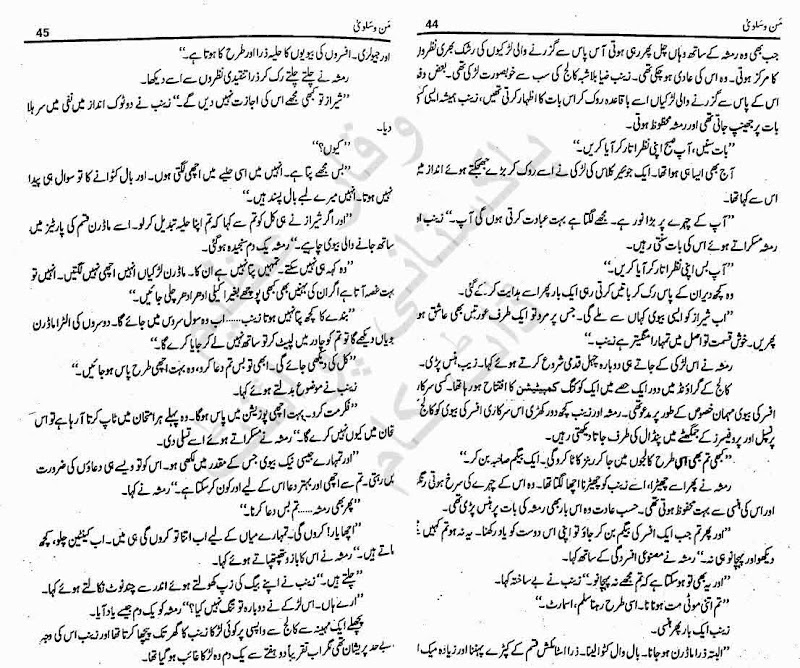 44
من و سلویٰ
جب بھی وہ رمشہ کے ساتھ وہاں چل پھر رہی ہوتی آس پاس سے گزرنے والی لڑکیوں کی رشک بھری نظروں
کا مرکز ہوتی۔ وہ اس کی عادی ہو چکی تھی۔ زینب ضیا بلاشبہ کالج کی سب سے خوبصورت لڑکی تھی۔ بعض دفعہ
اس کے پاس سے گزرنے والی لڑکیاں اسے باقاعدہ روک کر اس بات کا اظہار کرتی تھیں، زینب ہمیشہ ایسی کسی
بات پر جھینپ جاتی تھی اور رمشہ محظوظ ہوتی۔
"بات سنیں، آپ صبح اپنی نظر اتار کر آیا کریں۔"
آج بھی ایسا ہی ہوا تھا۔ ایک جونیئر کلاس کی لڑکی نے اسے روک کر بڑے جھجکتے ہوئے انداز میں
اس سے کہا تھا۔
"آپ کے چہرے پر بڑا نور ہے۔ مجھے لگتا ہے بہت عبادت کرتی ہوں گی آپ۔" زینب اور
رمشہ مسکراتے ہوئے اس کی بات سنتی رہیں۔
"آپ بس اپنی نظر اتار کر آیا کریں۔"
وہ کچھ دیر ان کے پاس رک کر باتیں کرتی رہی ایک بار پھر اسے ہدایت کر کے گئی۔
"اب شیراز کو ایسی بیوی کہاں سے ملے گی۔ جس پر مرد تو ایک طرف عورتیں بھی عاشق ہوتی
پھریں۔ خوش قسمت تو اصل میں تمہارا منگیتر ہے زینب۔"
رمشہ نے اس لڑکی کے جاتے ہی دوبارہ چہل قدمی شروع کرتے ہوئے کہا۔ زینب ہنس پڑی۔
کالج کے گراؤنڈ میں دور ایک حصے میں ایک کوکنگ کمپیٹیشن کا افتتاح ہو رہا تھا۔ کسی سرکاری
افسر کی بیوی مہمان خصوصی کے طور پر مدعو تھی۔ رمشہ اور زینب کچھ دور کھڑی اس سرکاری افسر کی بیوی کو کالج کی
پرنسپل اور پروفیسرز کے جمگھٹے میں پنڈال کی طرف جاتا دیکھتی رہیں۔
"کبھی تم بھی اسی طرح کالجوں میں جا کر ربنز کاٹا کرو گی۔ ایک بیگم صاحبہ بن کر۔"
رمشہ نے پھر اسے چھیڑا، اسے زینب کو چھیڑنا اچھا لگتا تھا۔ وہ اس کے چہرے کی سرخ ہوتی رنگت
اور اس کی ہنسی سے بہت محظوظ ہوتی تھی۔ حسب عادت وہ اس بار بھی رمشہ کی بات پر ہنس پڑی تھی۔
"اور پھر تم جب ایک افسر کی بیگم بن کر جاؤ تو اپنی اس دوست کو یاد رکھنا۔ یہ نہ ہو تم کہیں مجھے
دیکھو اور پہچانو ہی نہ۔" رمشہ نے مصنوعی افسردگی کے ساتھ کہا۔
"اور یہ بھی تو ہو سکتا ہے کہ تم مجھے نہ پہچانو۔" زینب نے بے ساختہ کہا۔
"تم اتنی موٹی مت ہونا نا۔ اسی طرح رہنا سلم، اسمارٹ۔"
زینب ایک بار پھر ہنسی۔
"البتہ ذرا ماڈرن ہو جانا۔ بال وال کٹوا لینا۔ ذرا اسٹائلش قسم کے کپڑے پہننا اور زیادہ میک اپ
من و سلویٰ
45
اور جیولری۔ افسروں کی بیویوں کا حلیہ ذرا اور طرح کا ہوتا ہے۔"
رمشہ نے چلتے چلتے رک کر ذرا تنقیدی نظروں سے اسے دیکھا۔
"شیراز تو کبھی مجھے اس کی اجازت نہیں دیں گے۔" زینب نے دوٹوک انداز میں نفی میں سر ہلا
دیا۔
"کیوں؟"
"بس مجھے پتا ہے۔ انہیں میں اسی حلیے میں اچھی لگتی ہوں۔ اور بال کٹوانے کا تو سوال ہی پیدا
نہیں ہوتا۔ انہیں میرے لمبے بال پسند ہیں۔"
"اور اگر شیراز نے ہی کل کو تم سے کہا کہ تم اپنا حلیہ تبدیل کر لو۔ اسے ماڈرن قسم کی پارٹیز میں
ساتھ جانے والی بیوی چاہیے۔" رمشہ یک دم سنجیدہ ہو گئی۔
"وہ کہہ ہی نہیں سکتے۔ تمہیں پتا نہیں ہے ان کا۔ ماڈرن لڑکیاں انہیں اچھی نہیں لگتیں۔ انہیں تو
بہت غصہ آتا ہے اگر ان کی بہنیں بھی کبھی پوچھے بغیر اکیلی ادھر ادھر چلی جائیں۔"
"بندے کا کچھ پتا نہیں ہوتا زینب...... اب وہ سول سروس میں جائے گا۔ دوسروں کی الٹرا ماڈرن
بیویاں دیکھے گا تو تم کو چادر میں لپیٹ کر تو ساتھ نہیں لے کر جایا کرے گا۔"
"کل کی دیکھی جائے گی۔ ابھی تو بس تم دعا کرو، وہ بہت اچھی طرح پاس ہو جائیں۔"
زینب نے موضوع بدلتے ہوئے کہا۔
"فکر مت کرو۔ بہت اچھی پوزیشن میں پاس ہوگا۔ وہ پہلے ہر امتحان میں ٹاپ کرتا آ رہا ہے تو اس
امتحان میں کیوں نہیں کرے گا۔" رمشہ نے مسکراتے ہوئے اسے تسلی دی۔
"اور تمہارے جیسی نیک بیوی جس کے مقدر میں لکھی ہو۔ اس کو تو ویسے ہی دعاؤں کی ضرورت
نہیں رہتی۔ تم سے اچھی اور بہتر دعا اس کے لیے اور کون کر سکتا ہے۔" رمشہ نے کہا۔
"پھر بھی رمشہ...... تم بس دعا کرنا۔"
"اچھا یار! کروں گی۔ تمہارے میاں کے لیے اب اتنا تو کروں گی ہی میں۔ اب کینٹین چلو، کچھ
کھاتے ہیں۔" رمشہ نے اس کا بازو تھپتھپاتے ہوئے کہا۔
"چلتے ہیں۔" زینب نے اپنے بیگ کی زپ کھولتے ہوئے اندر سے چند نوٹ نکالتے ہوئے کہا۔
"ارے ہاں۔ اس لڑکے نے دوبارہ تو تنگ نہیں کیا؟" رمشہ کو یک دم جیسے یاد آیا۔
پچھلے ایک مہینہ سے کالج سے واپسی پر کوئی لڑکا زینب کا گھر تک پیچھا کرتا تھا اور زینب اس کی وجہ
سے بے حد پریشان تھی مگر اب تقریباً دو ہفتے سے یک دم وہ لڑکا غائب ہو گیا تھا۔